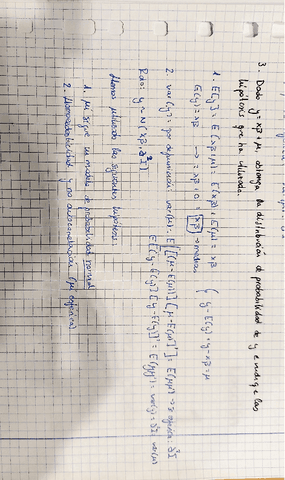 3. Dado y = xβ + μ, obtenga la distribución de probabilidad de y e indique las
hipótesis que ha utilizado.
1. E(y) = E(xβ + μ) = E(xβ) + E(μ) = xβ
{ y - E(y) = y - xβ = μ
E(y) = xβ → = xβ + 0 = xβ → media
2. var(y): por definición var(μ): E[[μ - E(μ)] [μ - E(μ)]'] = E(μμ') → x esférica: σ²I
E[[y - E(y)] [y - E(y)]'] = E(μμ') = var(y) = σ²I var(μ)
Rdo: y ~ N(xβ, σ²I)
Hemos utilizado las siguientes hipótesis:
1. μ sigue un modelo de probabilidad normal
2. Homocedasticidad y no autocorrelación (μ esférica)